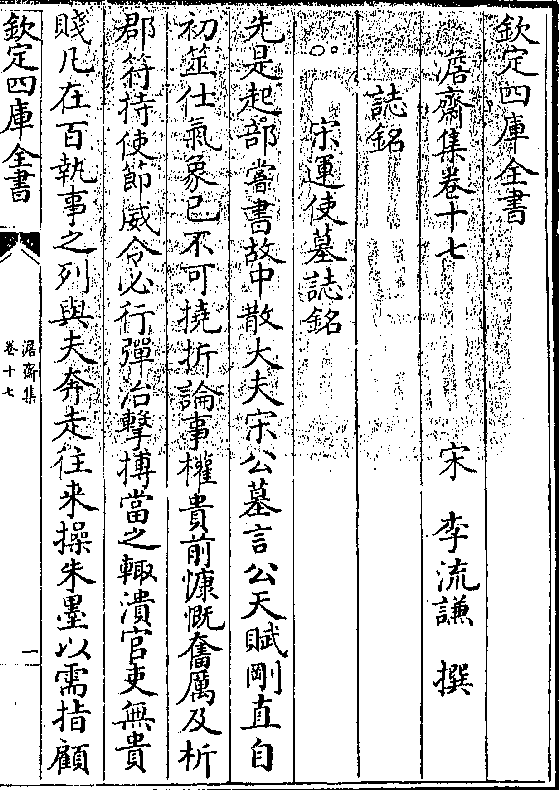 欽定四庫全書
澹齋集卷十七 宋 李流謙 撰
誌銘
宋運使墓誌銘
先是起部嘗書故中散大夫宋公墓言公天賦剛直自
初筮仕氣象已不可撓折論事權貴前慷慨奮厲及析
郡符持使節威令必行彈治擊摶當之輙潰官吏無貴
賤凡在百執事之列與夫奔走往来操朱墨以需指顧
欽定四庫全書
澹齋集
卷十七
一